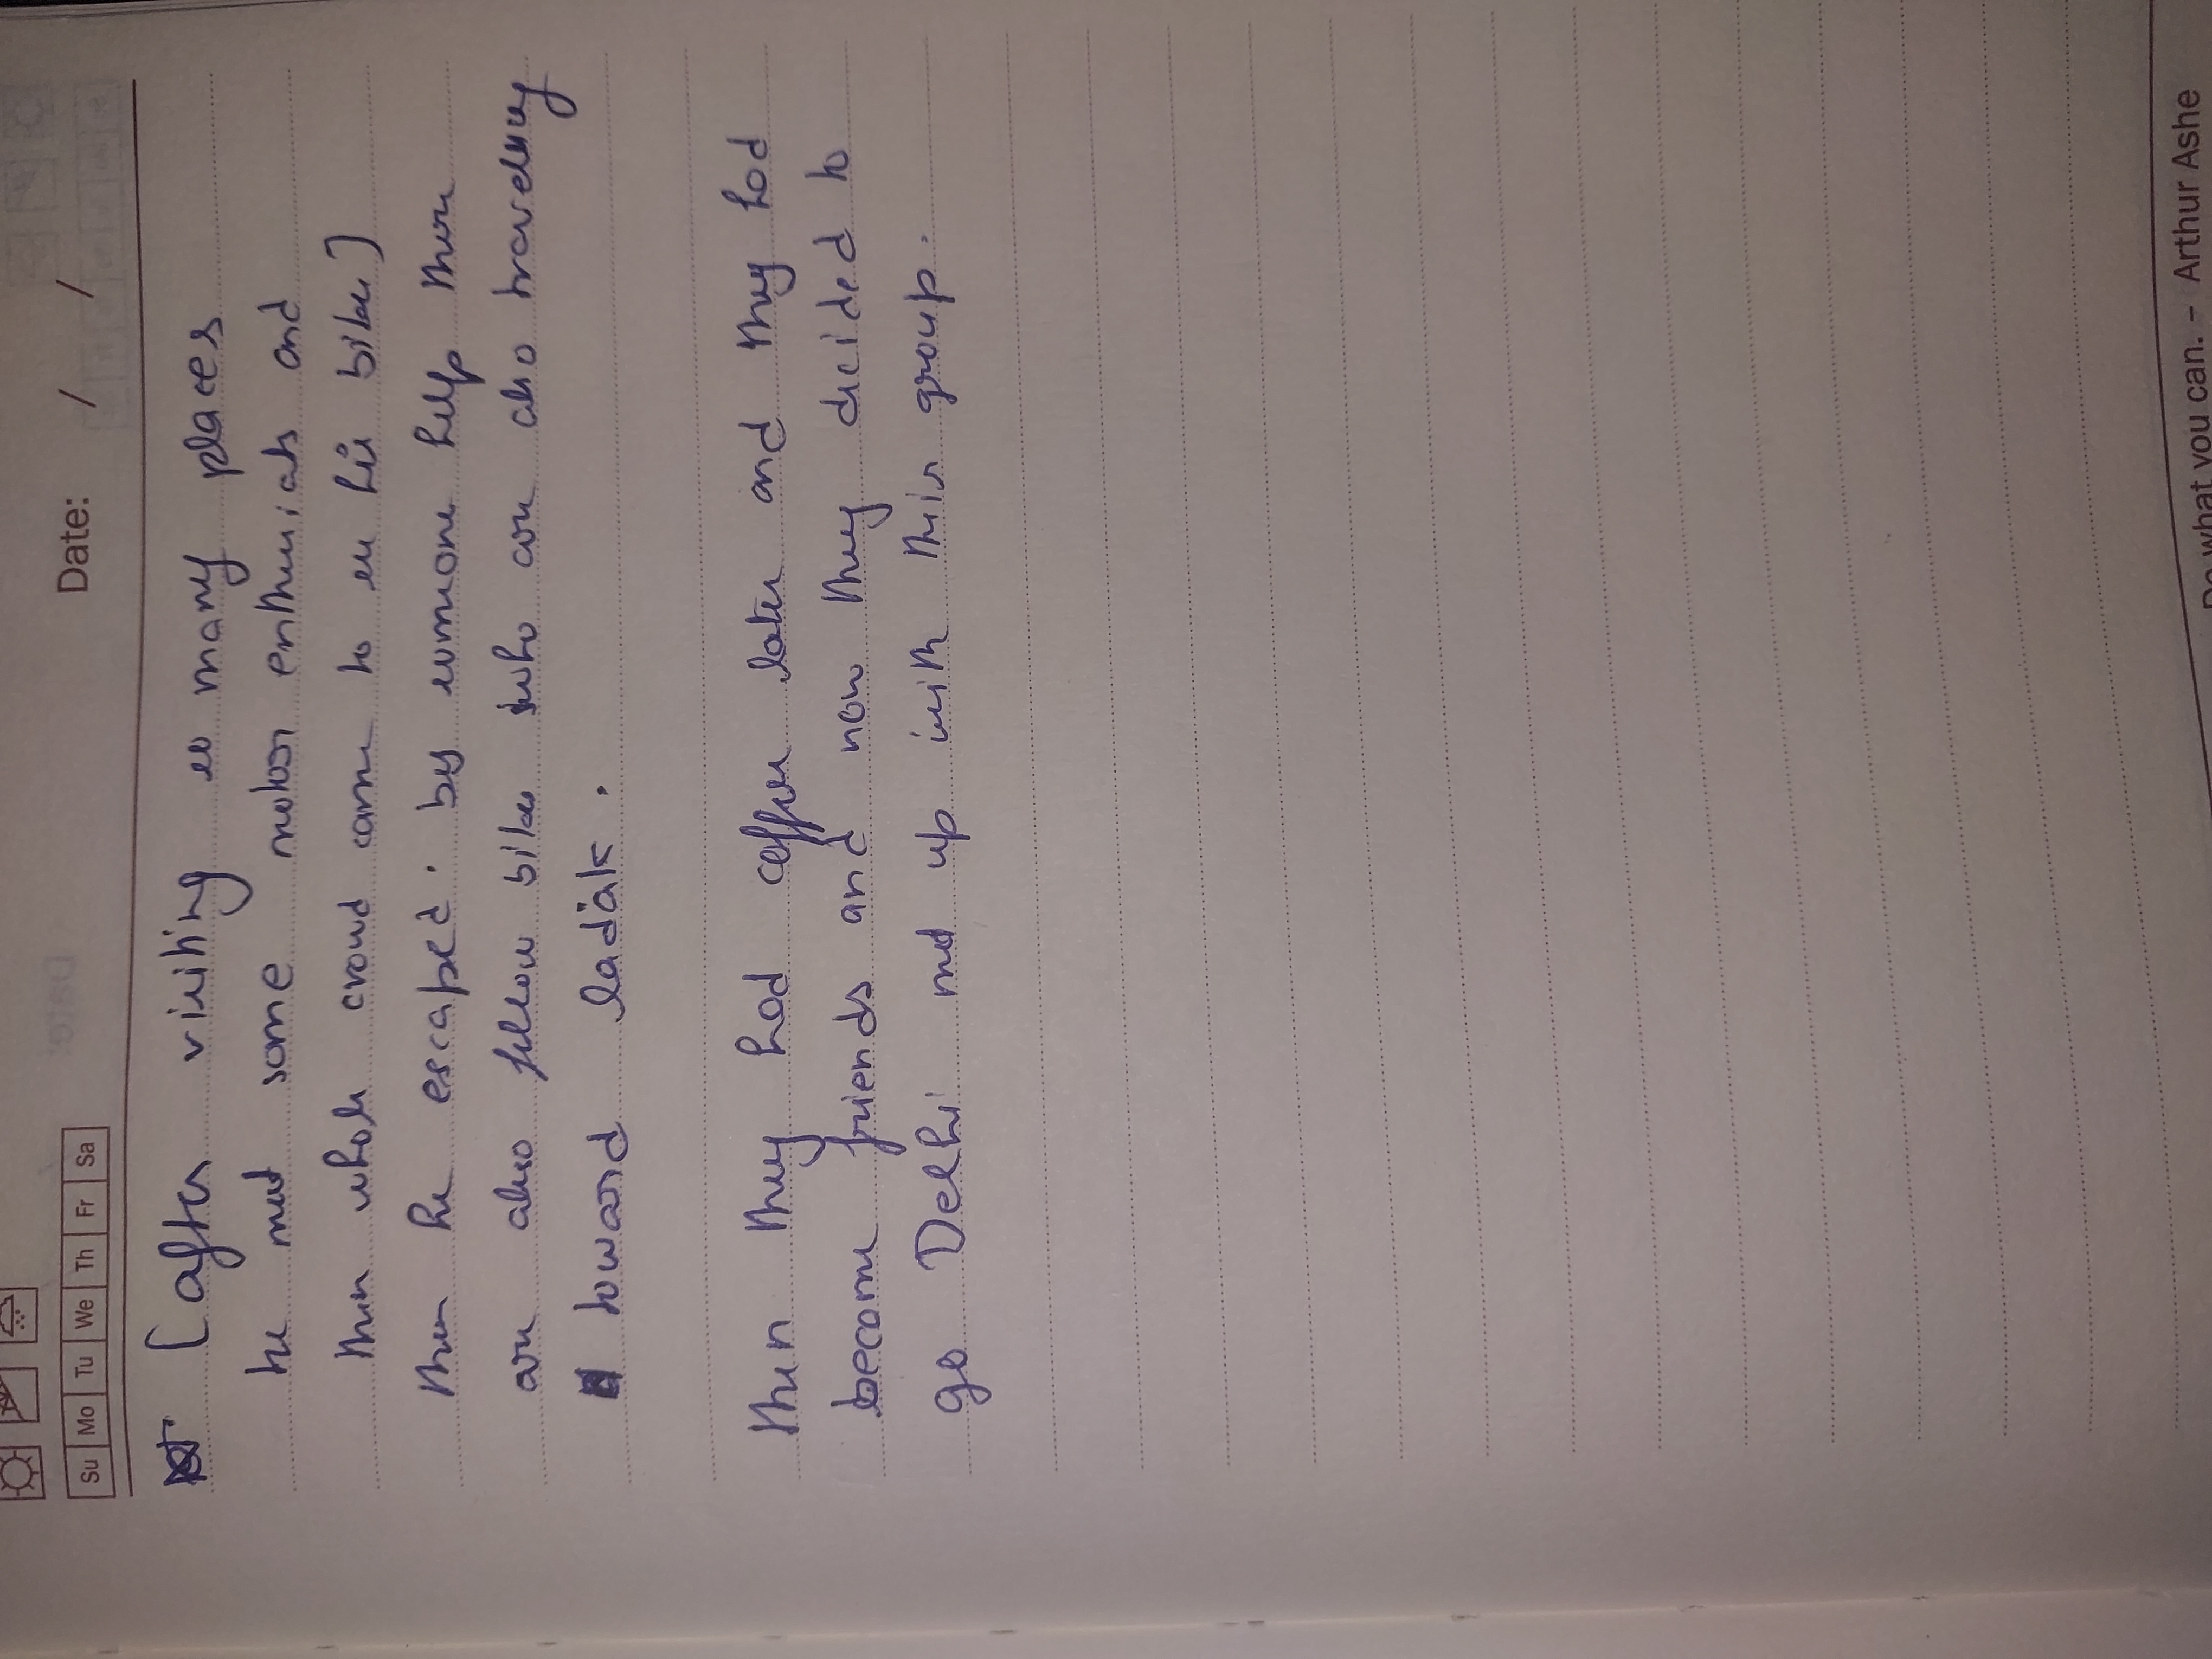 Su Mo Tu We Th Fr Sa Date: / /
[after visiting so many places
he met some motor enthusiats and
then whole crowd came to see his bike]
then he escaped. by someone help there
are also fellow bikes who are also travelling
toward ladak.
then they had coffee later and they had
become friends and now they decided to
go Delhi met up with this group.
what you can. - Arthur Ashe